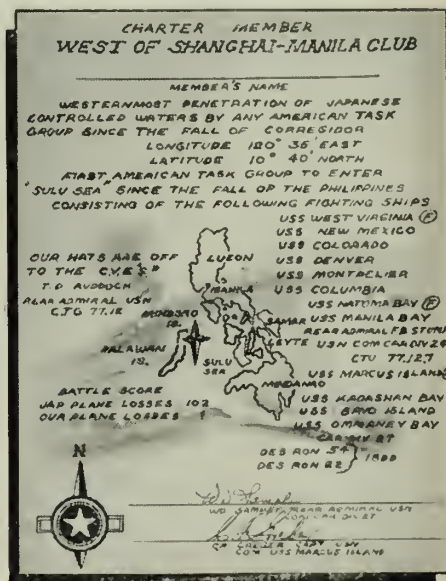 CHARTER MEMBER
WEST OF SHANGHAI-MANILA CLUB
MEMBER'S NAME
WESTERNMOST PENETRATION OF JAPANESE
CONTROLLED WATERS BY ANY AMERICAN TASK
GROUP SINCE THE FALL OF CORREGIDOR
LONGITUDE 120° 35' EAST
LATITUDE 10° 40' NORTH
FIRST AMERICAN TASK GROUP TO ENTER
"SULU SEA" SINCE THE FALL OF THE PHILIPPINES
CONSISTING OF THE FOLLOWING FIGHTING SHIPS
USS WEST VIRGINIA (F)
USS NEW MEXICO
USS COLORADO
USS DENVER
USS MONTPELIER
USS COLUMBIA
USS NATOMA BAY (F)
USS MANILA BAY
REAR ADMIRAL F.B. STUMP
USN COMCARDIV 24
CTU 77.12.7
USS MARCUS ISLAND
USS KADASHAN BAY
USS SAVO ISLAND
USS OMMANEY BAY
CARDIV 27
DES RON 54
DES RON 22
OUR HATS ARE OFF
TO THE C.V.E'S"
T.D. RUDDOCK
REAR ADMIRAL USN
C.T.G 77.12
LUZON
MANILA
MINDORO
IS.
PALAWAN
IS.
SAMAR
LEYTE
SULU
SEA
MINDANAO
BATTLE SCORE
JAP PLANE LOSSES 102
OUR PLANE LOSSES
N
REAR ADMIRAL USN
COM CAR DIV 27
CAPT USN
COM USS MARCUS ISLAND